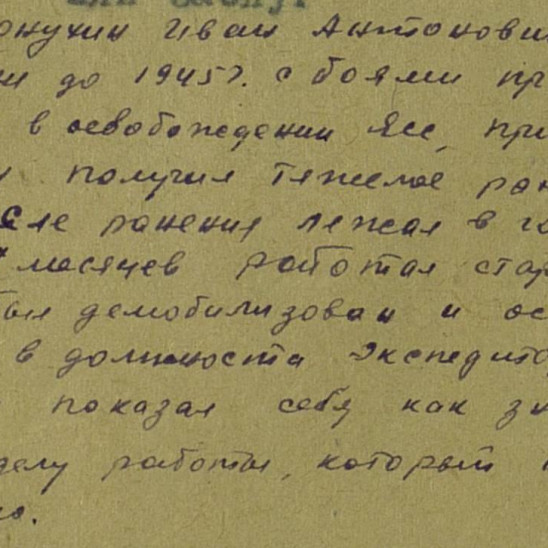 онухин Иван Антонови
до 1945г. с боями пр
в освобождении Ясс, при
получил тяжелое ран
сле ранения лежал в г
месяцев работал ста
был демобилизован и ос
в должности экспедито
показал себя как зн
делу работы, который
но.